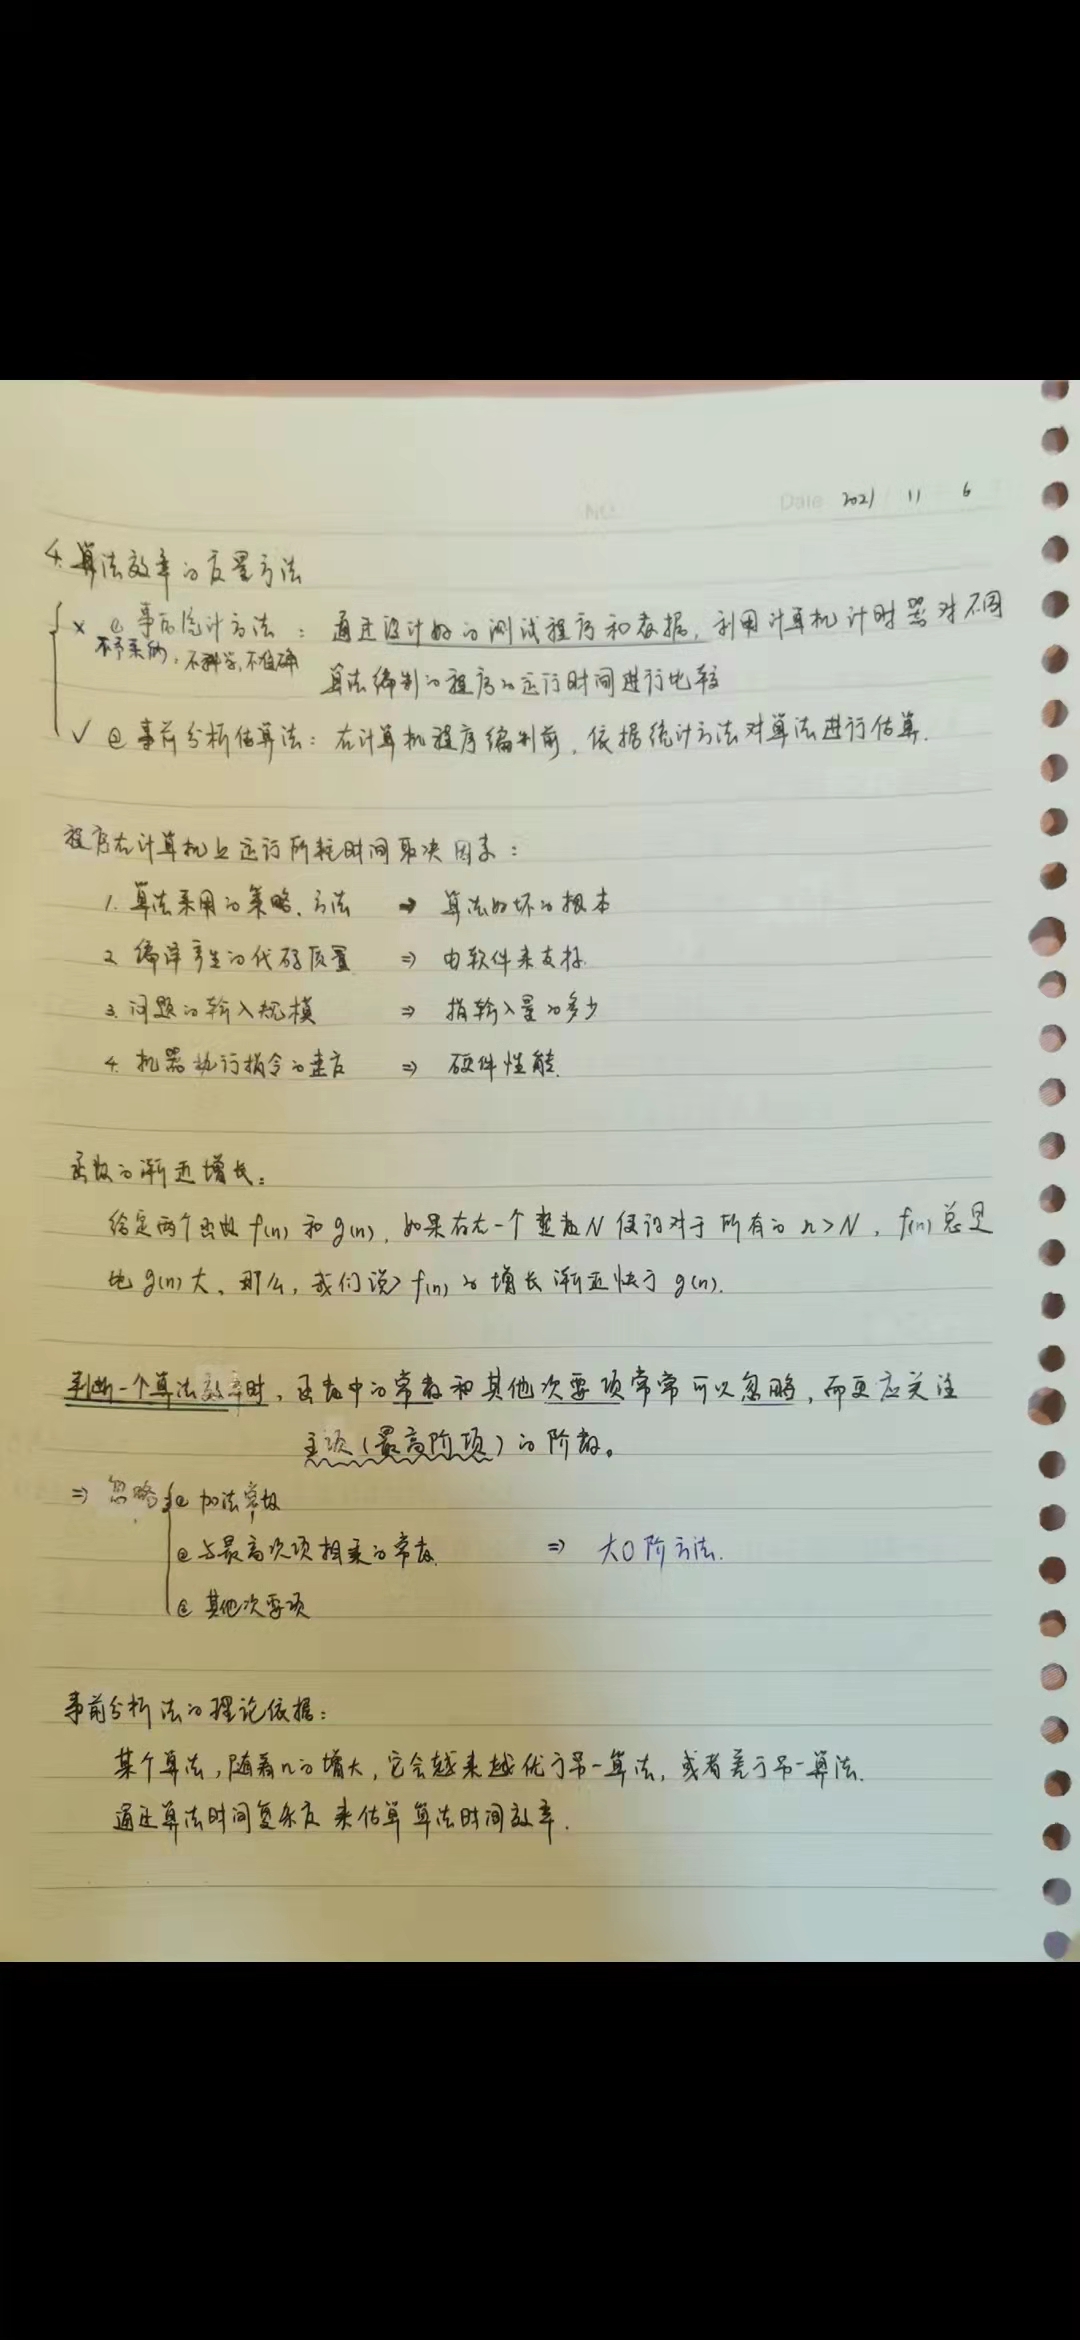 Date 2021 11 6
4. 算法效率的度量方法
× ① 事后统计方法: 通过设计好的测试程序和数据, 利用计算机计时器对不同
不予采纳: 不科学, 不准确
算法编制的程序的运行时间进行比较
✓ ② 事前分析估算法: 在计算机程序编制前, 依据统计方法对算法进行估算.
程序在计算机上运行所耗时间取决因素:
1. 算法采用的策略、方法 ⇒ 算法好坏的根本
2. 编译产生的代码质量 ⇒ 由软件来支持.
3. 问题的输入规模 ⇒ 指输入量的多少
4. 机器执行指令的速度 ⇒ 硬件性能.
函数的渐近增长:
给定两个函数 f(n) 和 g(n), 如果存在一个整数N使得对于所有的 n>N, f(n)总是
比 g(n)大, 那么, 我们说 f(n) 的增长渐近快于 g(n).
判断一个算法效率时, 函数中的常数和其他次要项常常可以忽略, 而更应关注
主项(最高阶项)的阶数。
⇒ 忽略 ① 加法常数
② 与最高次项相乘的常数. ⇒ 大O阶方法.
③ 其他次要项
事前分析法的理论依据:
某个算法, 随着n的增大, 它会越来越优于另一算法, 或者差于另一算法.
通过算法时间复杂度来估算算法时间效率.